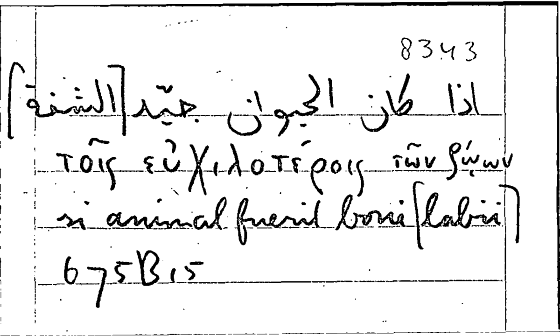 8343
اذا كان الحيوان جيّد [الشفة]
τοῖς εὐχιλοτέροις τῶν ζῴων
si animal fuerit boni [labii]
675B15